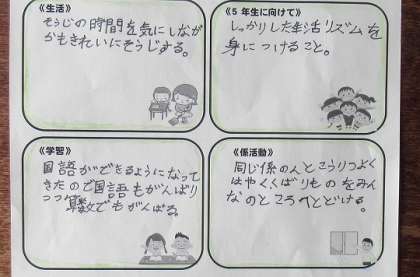 《生活》
そうじの時間を気にしながら
かもきれいにそうじする。
《5年生に向けて》
しっかりした生活リズムを
身につけること。
《学習》
国語ができるようになって
きたので国語もがんばり
つつ算数でもがんばる。
《係活動》
同じ係の人とこうりつよく
はやくくばりものをみん
なのところへとどける。